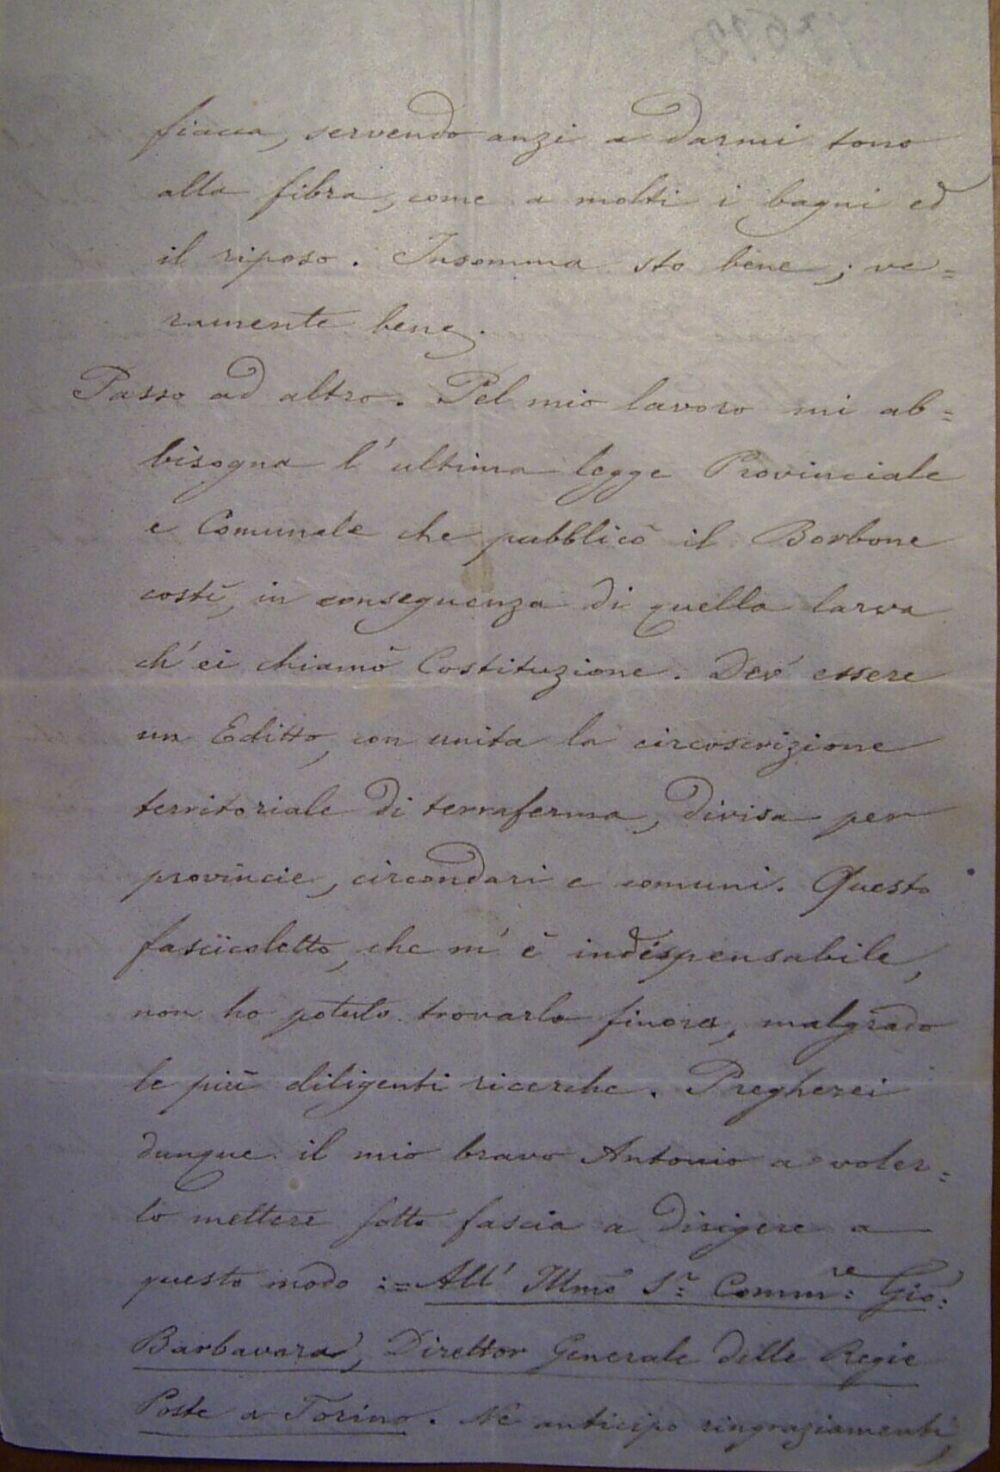 fiacca, servendo anzi a darmi tono
alla fibra, come a molti i bagni ed
il riposo. Insomma sto bene; ve=
ramente bene.
Passo ad altro. Pel mio lavoro mi ab=
bisogna l'ultima legge Provinciale
e Comunale che pubblicò il Borbone
costì, in conseguenza di quella larva
ch'ei chiamò Costituzione. Dev'essere
un Editto, con unita la circoscrizione
territoriale di terraferma, divisa per
provincie, circondari e comuni. Questo
fascicoletto, che m'è indispensabile,
non ho potuto trovarlo finora, malgrado
le più diligenti ricerche. Pregherei
dunque il mio bravo Antonio a voler=
lo mettere sotto fascia a dirigere a
questo modo := All'Illmo Sr. Commre: Gio:
Barbavara, Direttor Generale delle Regie
Poste a Torino. Ne anticipo ringraziamenti,